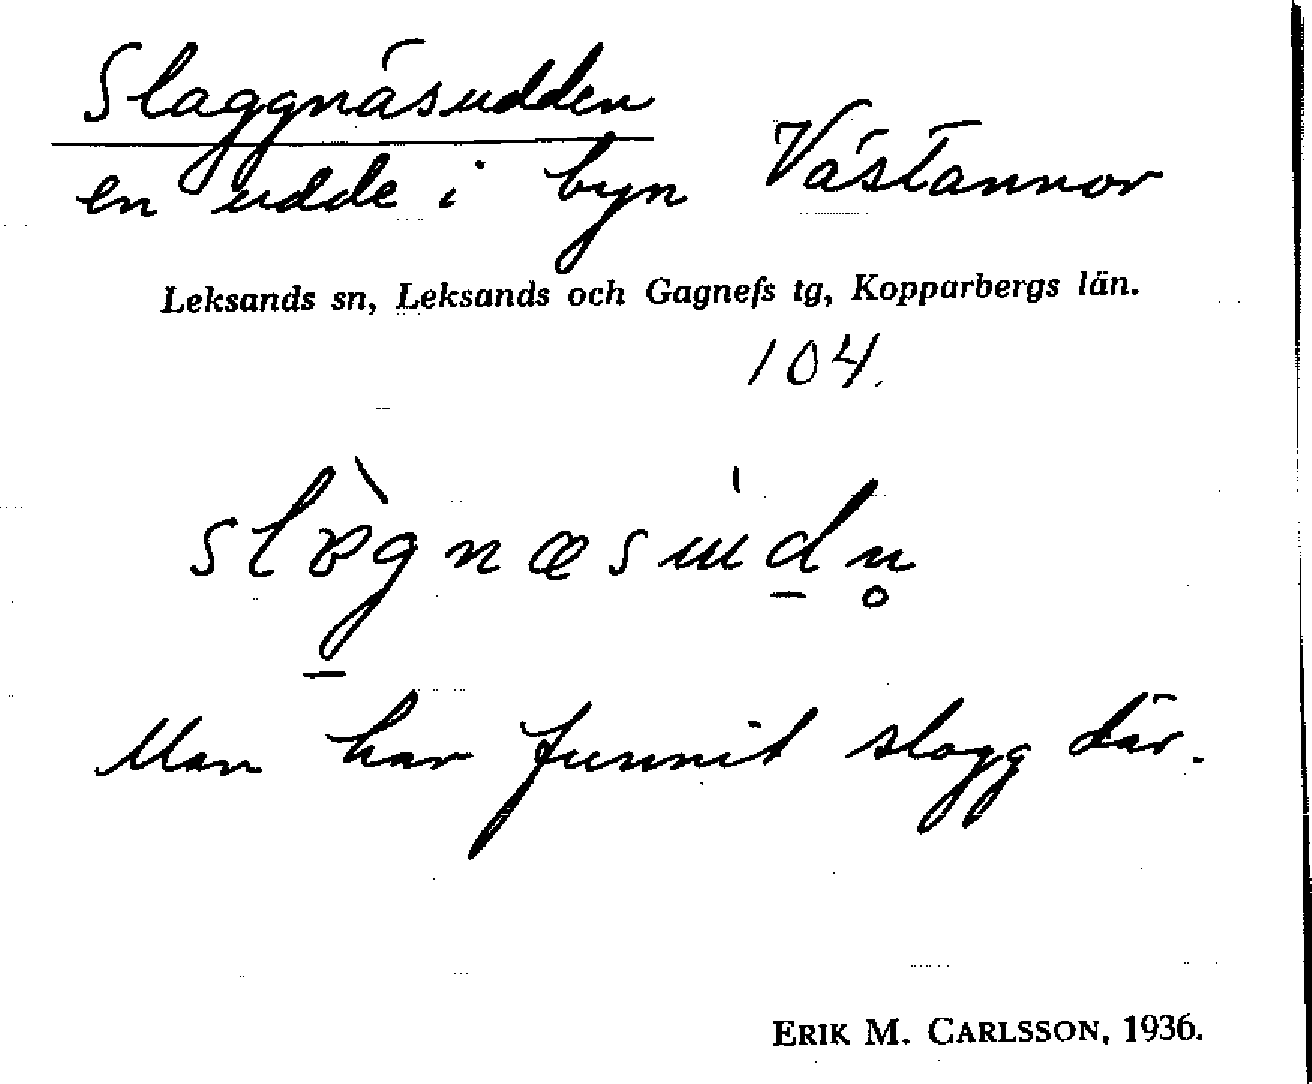 Slaggnäsudden
en udde i byn Västannor
Leksands sn, Leksands och Gagnefs tg, Kopparbergs län.
104.
Man har funnit slagg där.
ERIK M. CARLSSON, 1936.